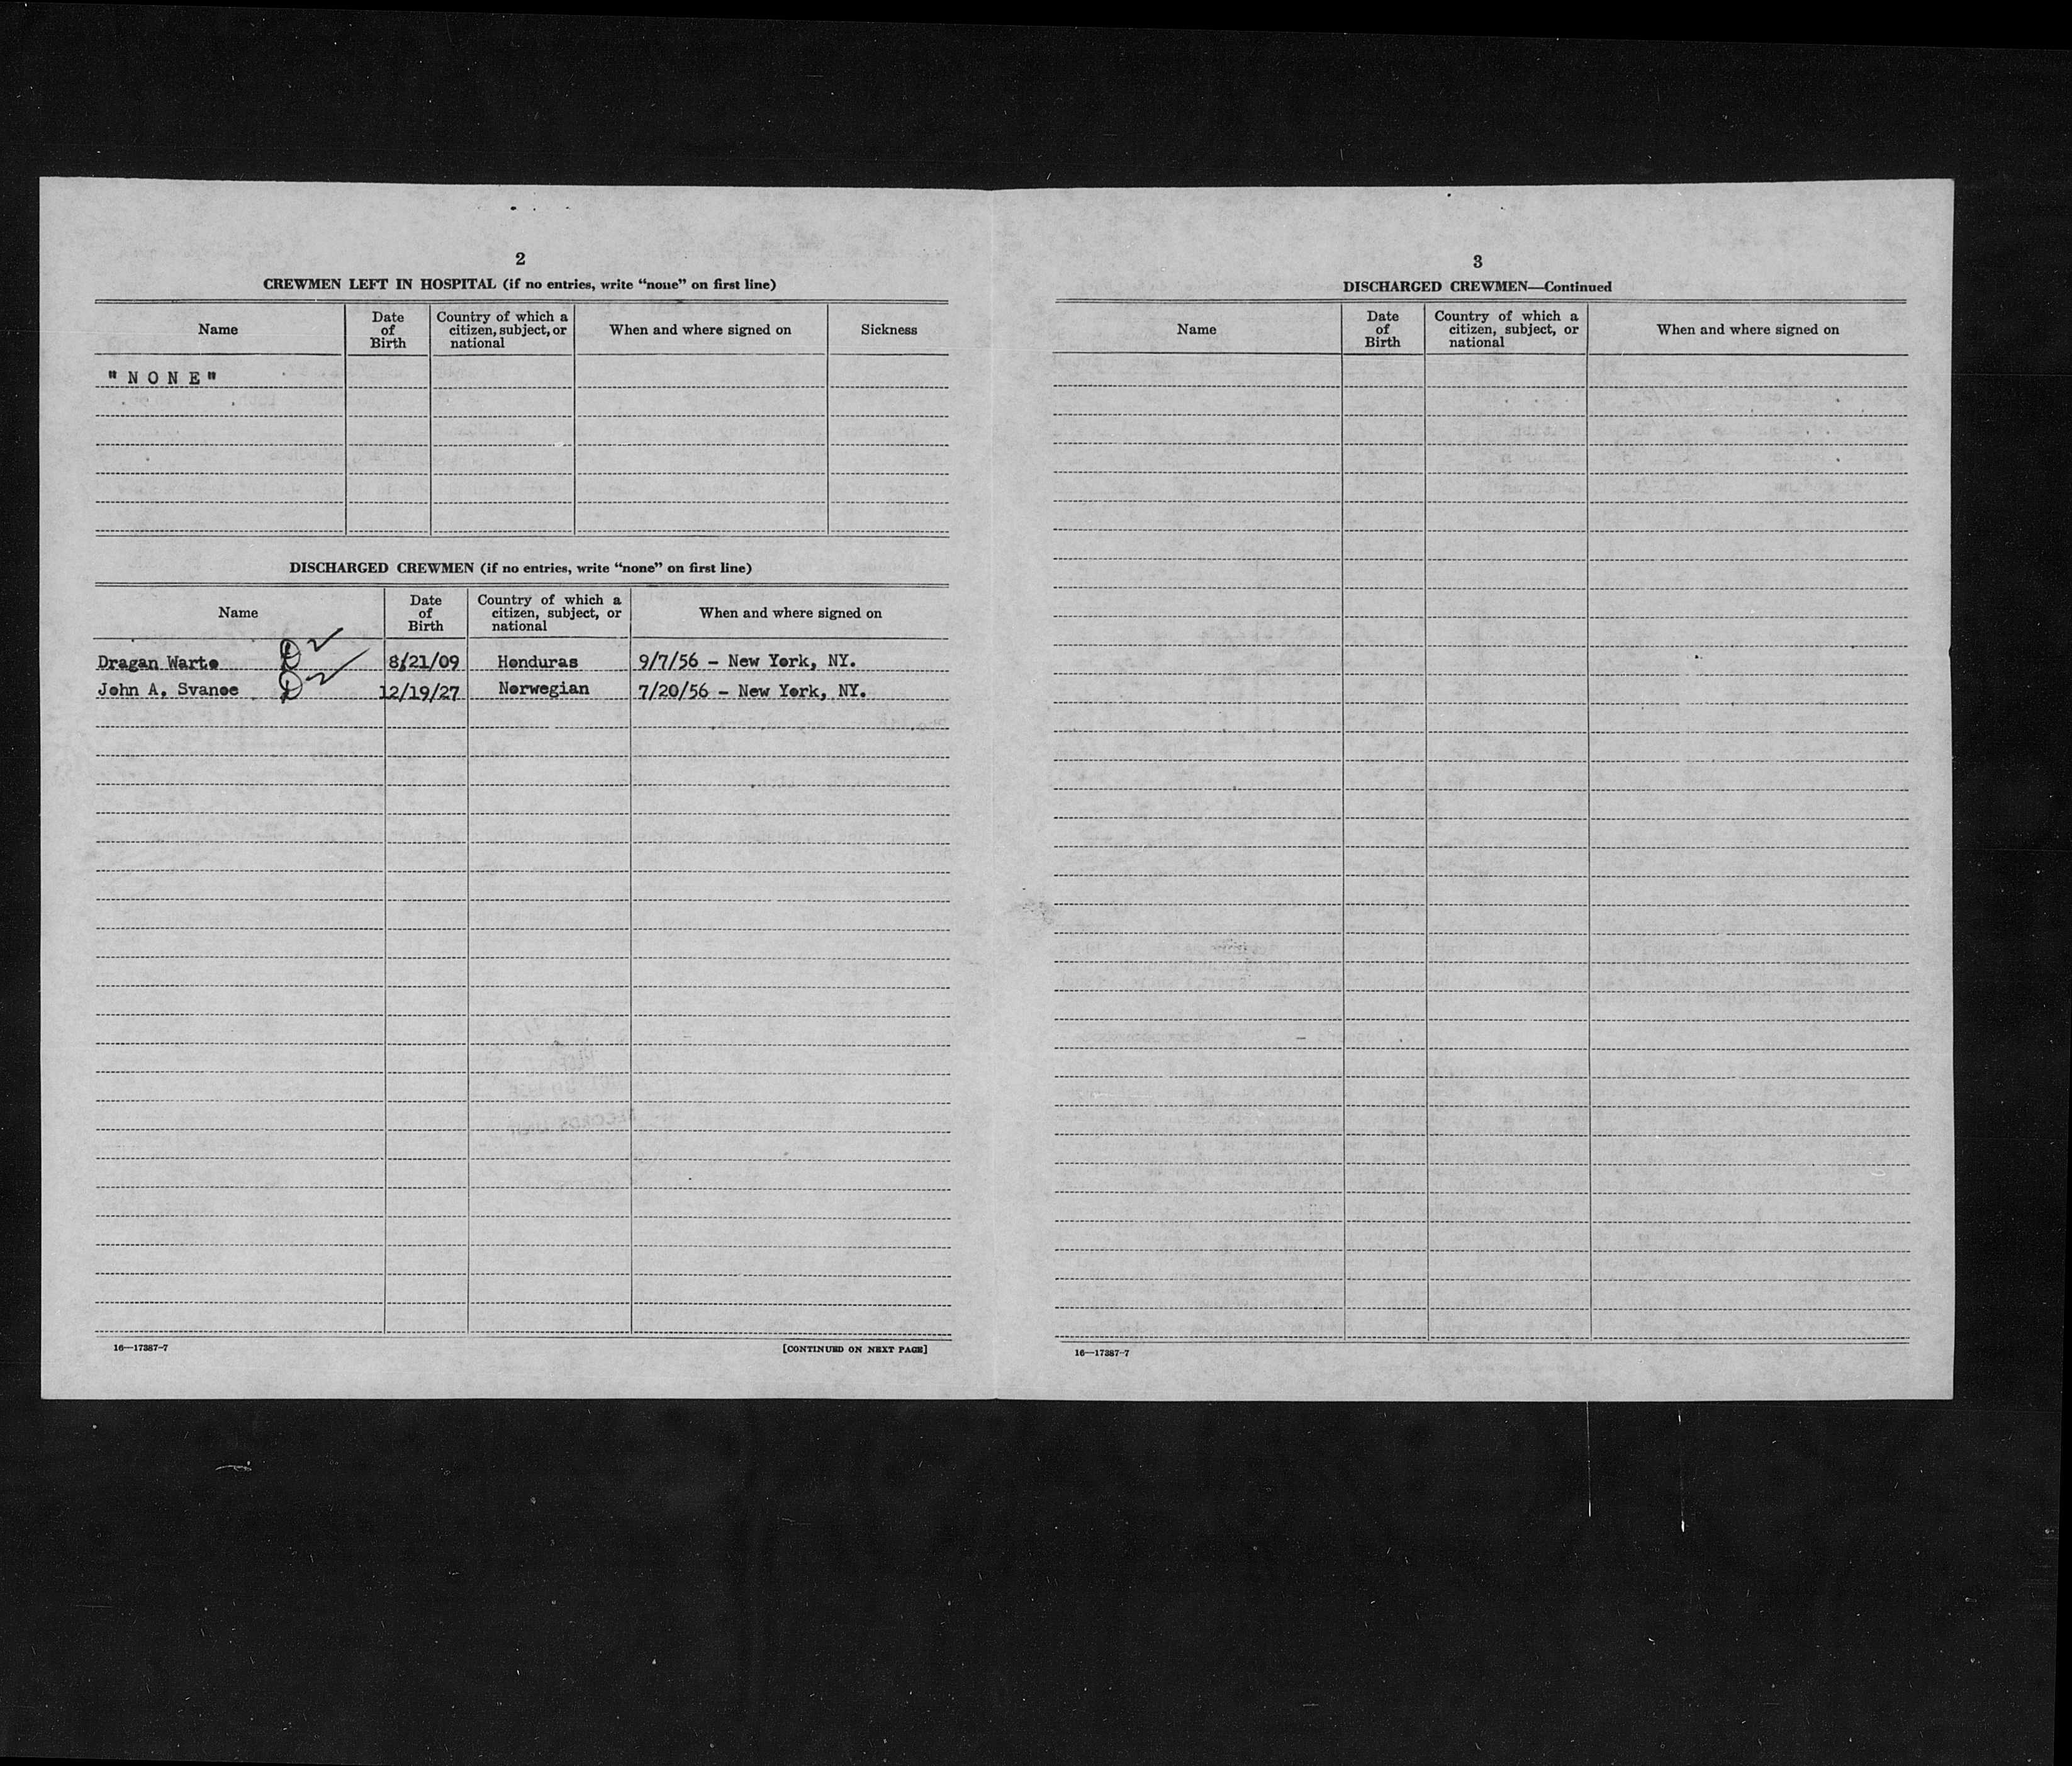 2
CREWMEN LEFT IN HOSPITAL (if no entries, write "none" on first line)
Name
Date of Birth
Country of which a citizen, subject, or national
When and where signed on
Sickness
"NONE"
DISCHARGED CREWMEN (if no entries, write "none" on first line)
Name
Date of Birth
Country of which a citizen, subject, or national
When and where signed on
Dragan Warto D 8/21/09 Honduras 9/7/56 - New York, NY.
John A. Svanoe D 12/19/27 Norwegian 7/20/56 - New York, NY.
16—17387-7
[CONTINUED ON NEXT PAGE]
3
DISCHARGED CREWMEN—Continued
Name
Date of Birth
Country of which a citizen, subject, or national
When and where signed on
16—17387-7